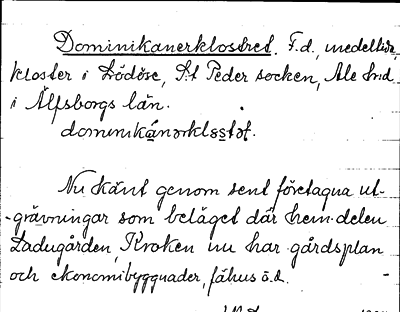 Dominikanerklostret. F.d. medeltida
kloster i Lödöse, S:t Peder socken, Ale hd
i Älfsborgs län.
dominikánərklɔstət.
Nu känt genom sent företagna ut-
-grävningar som beläget där hem. delen
Ladugården, Kroken nu har gårdsplan
och ekonomibyggnader, fähus o.d.